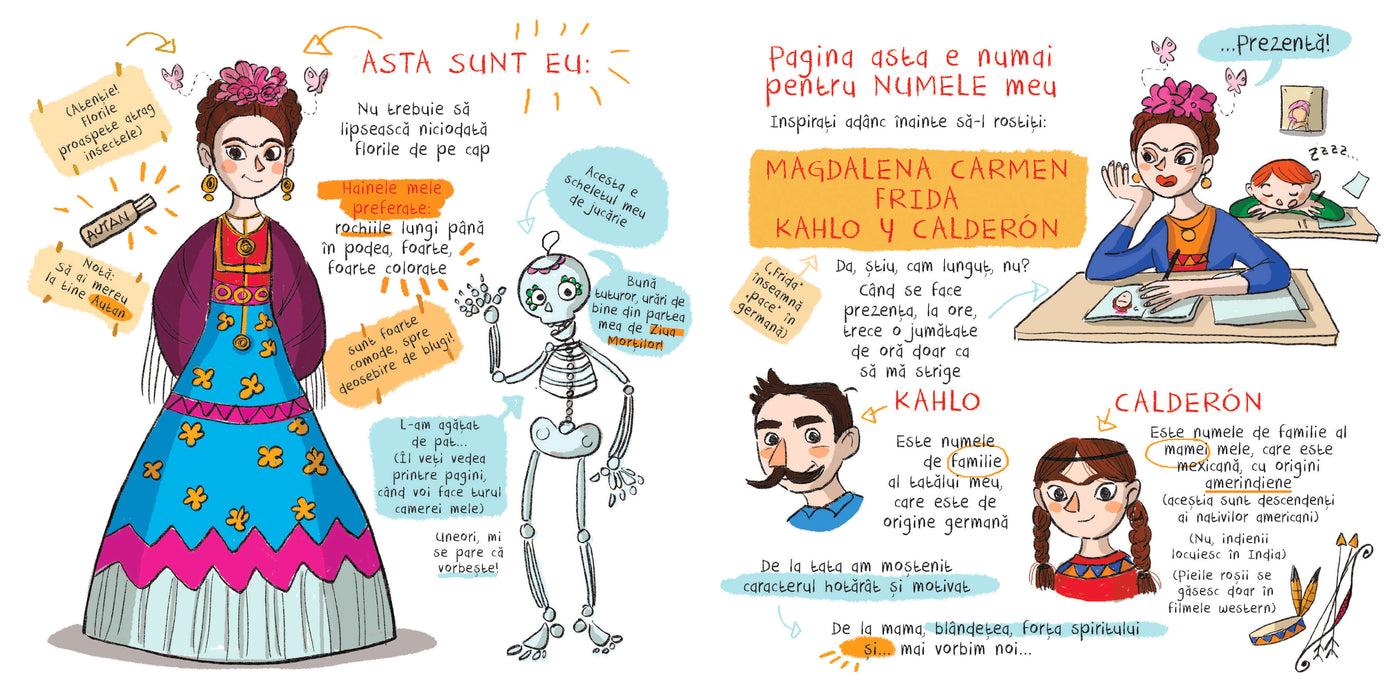 ASTA SUNT EU:
(Atenție!
Florile
proaspete atrag
insectele)
Nu trebuie să
lipsească niciodată
florile de pe cap
AUTAN
Notă:
Să ai mereu
la tine Autan
Hainele mele
preferate:
rochiile lungi până
în podea, foarte,
foarte colorate
sunt foarte
comode, spre
deosebire de blugi!
Acesta e
scheletul meu
de jucărie
Bună
tuturor, urări de
bine din partea
mea de Ziua
Morților!
L-am agățat
de pat...
(Îl veți vedea
printre pagini,
când voi face turul
camerei mele)
Uneori, mi
se pare că
vorbește!
Pagina asta e numai
pentru NUMELE meu
Inspirați adânc înainte să-l rostiți:
MAGDALENA CARMEN
FRIDA
KAHLO Y CALDERÓN
...Prezentă!
Zzzz...
(„Frida”
înseamnă
„pace” în
germană)
Da, știu, cam lunguț, nu?
Când se face
prezența, la ore,
trece o jumătate
de oră doar ca
să mă strige
KAHLO
Este numele
de familie
al tatălui meu,
care este de
origine germană
CALDERÓN
Este numele de familie al
mamei mele, care este
mexicană, cu origini
amerindiene
(aceștia sunt descendenți
ai nativilor americani)
(Nu, indienii
locuiesc în India)
(Pieile roșii se
găsesc doar în
filmele western)
De la tata am moștenit
caracterul hotărât și motivat
De la mama, blândețea, forța spiritului
și... mai vorbim noi...